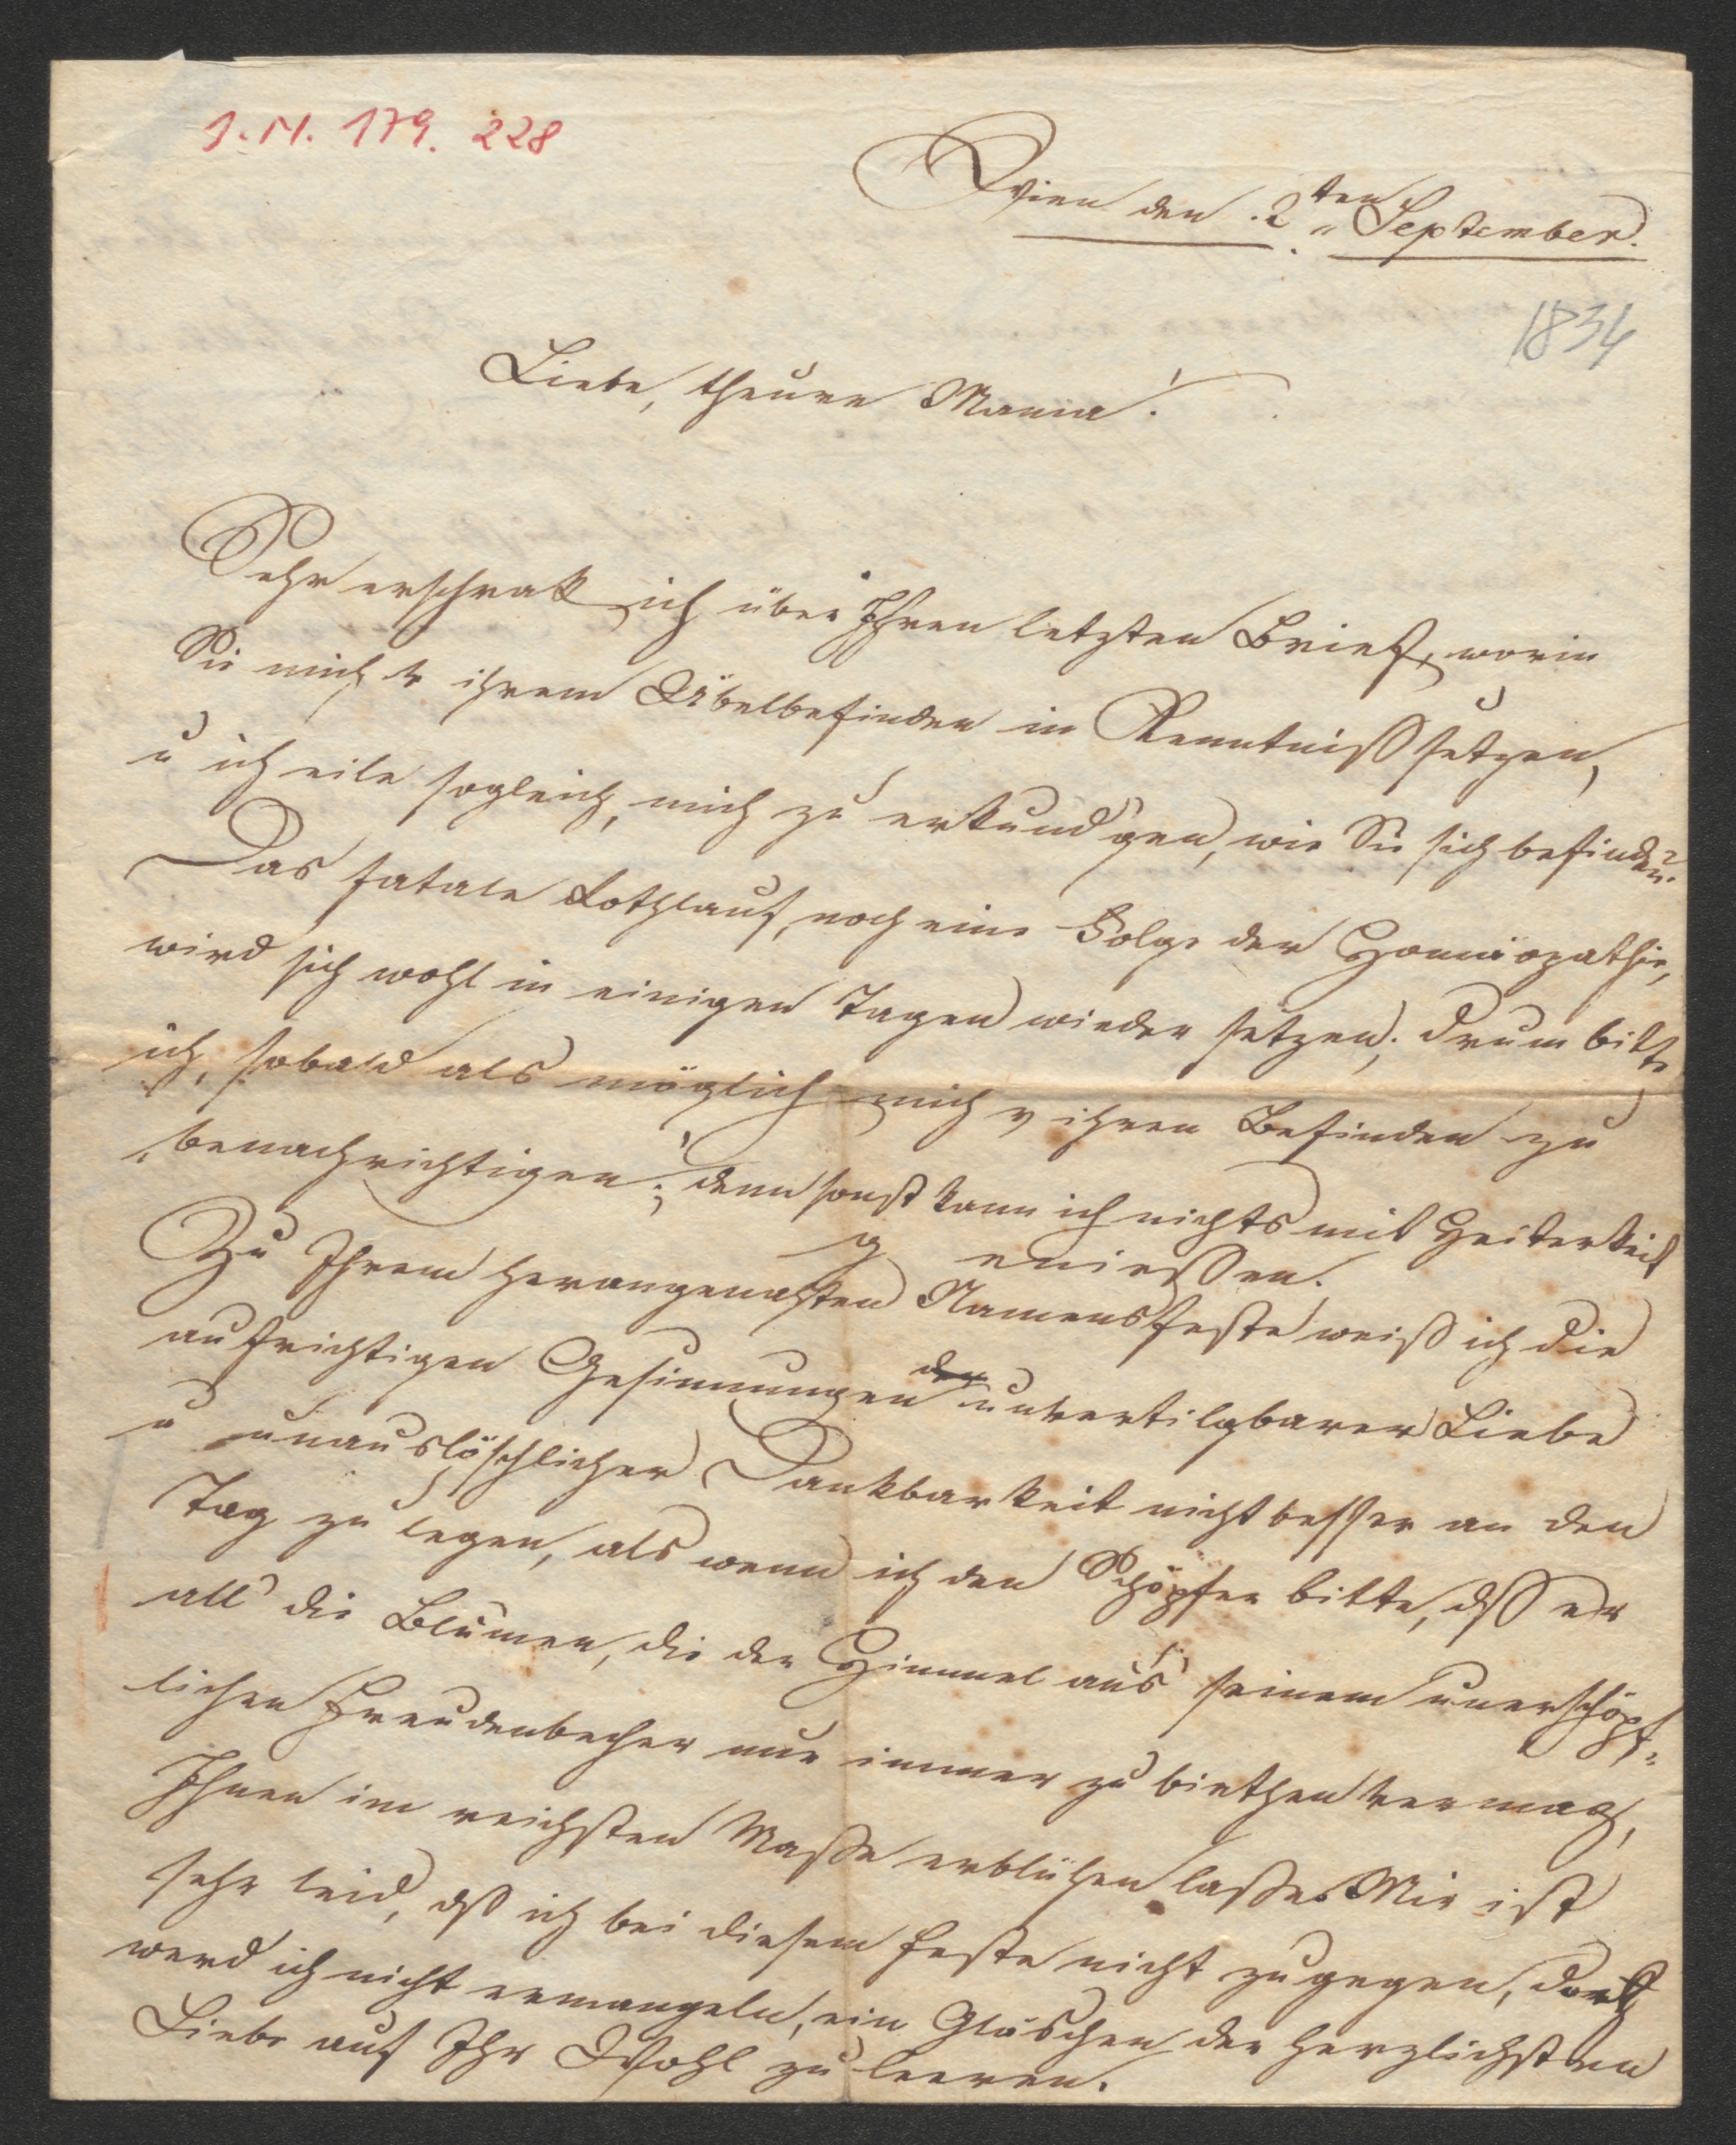 I. N. 179. 228
Wien den 2ten September.
1834
Liebe, theure Mama!
Sehr erschrak ich über Ihren letzten Brief, worin
Sie mich v ihrem Übelbefinden in Kenntniß setzen,
u ich eile sogleich, mich zu erkund'gen, wie Sie sich befinden?
Das fatale Rothlauf, noch eine Folge der Homöopathie,
wird sich wohl in einigen Tagen wieder setzen; drum bitte
ich, sobald als möglich mich v ihren Befinden zu
benachrichtigen; denn sonst kann ich nichts mit Heiterkeit
genießen.
Zu Ihrem herangenahten Namensfeste weiß ich die
aufrichtigen Gesinnungen der unvertilgbarer Liebe
u unauslöschlicher Dankbarkeit nicht besser an den
Tag zu legen, als wenn ich den Schöpfer bitte, dß er
all' die Blumen, die der Himmel aus seinem unerschöpf-
lichen Freudenbecher nur immer zu biethen vermag,
Ihnen im reichsten Maße erblühen laße. Mir ist
sehr leid, dß ich bei diesem Feste nicht zugegen, doch
werd ich nicht ermangeln, ein Gläschen der herzlichsten
Liebe auf Ihr Wohl zu leeren.